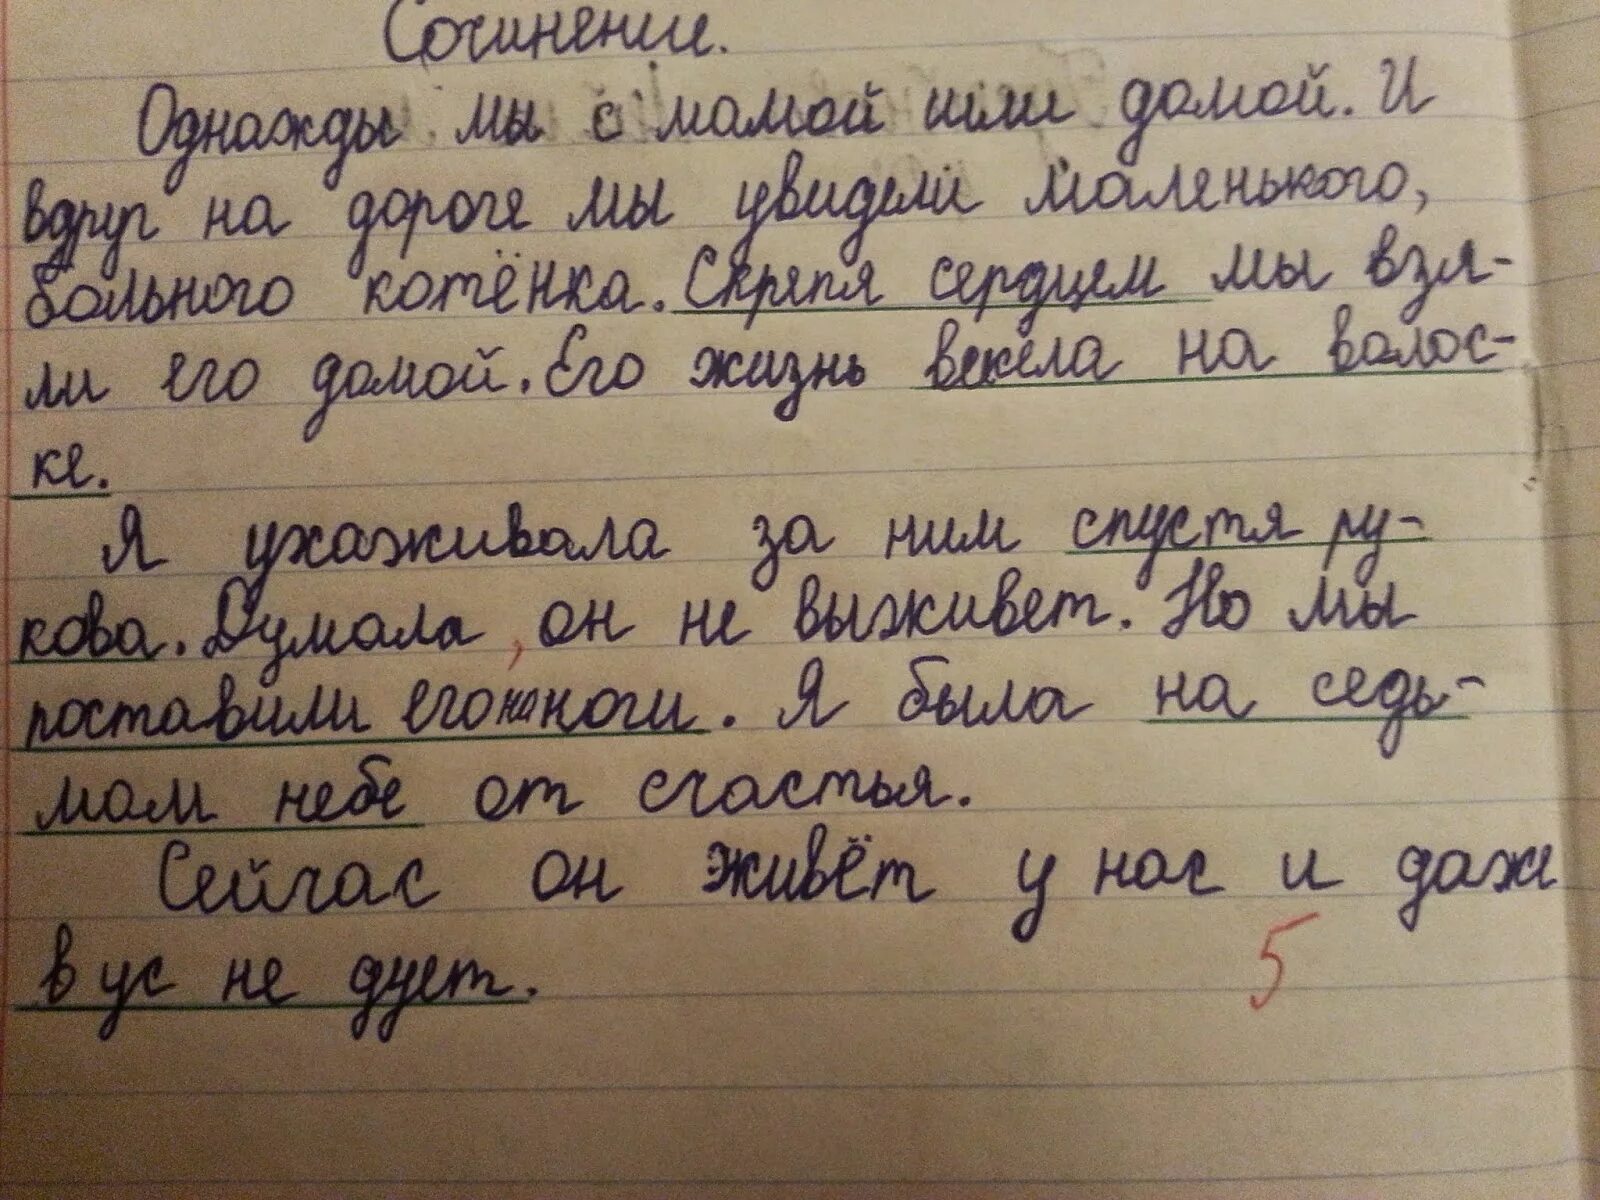 Сочинение.
Однажды мы с мамой шли домой. И
вдруг на дороге мы увидели маленького,
больного котёнка. Скрепя сердцем мы взя-
ли его домой. Его жизнь весела на волос-
ке.
Я ухаживала за ним спустя ру-
кова. Думала, он не выживет. Но мы
поставили его на ноги. Я была на седь-
мом небе от счастья.
Сейчас он живёт у нас и даже
в ус не дует.
5